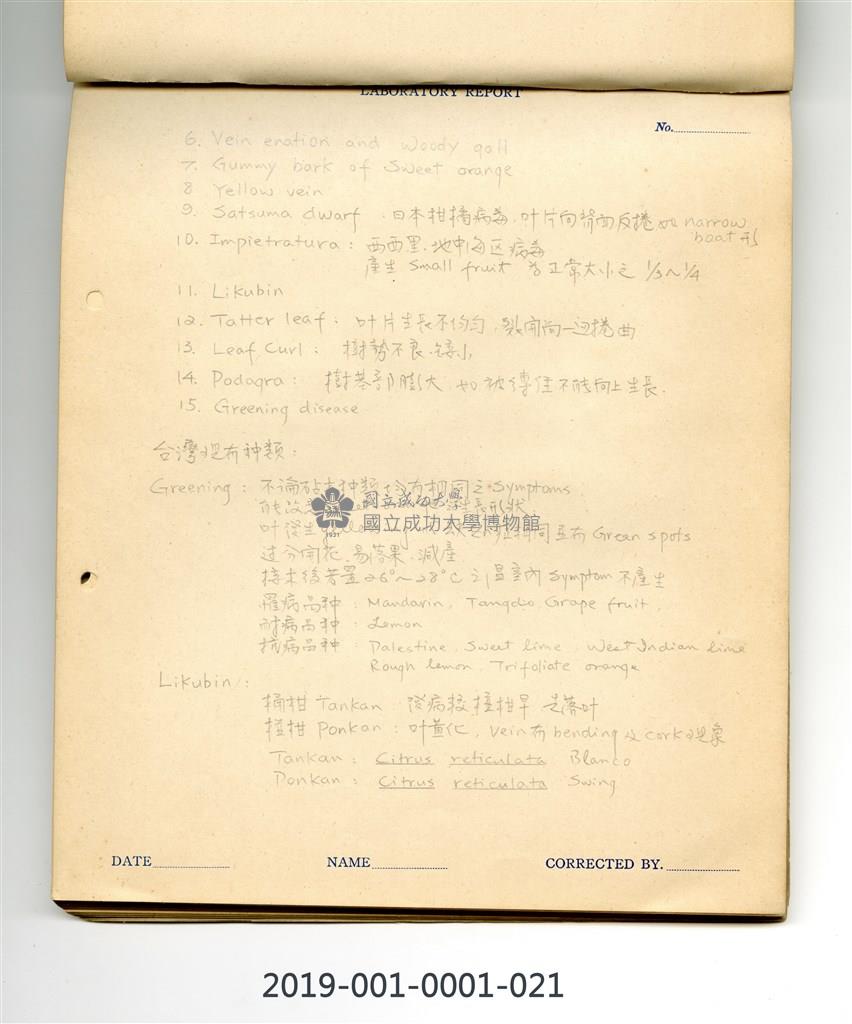 LABORATORY REPORT
No.
6. Vein enation and woody gall
7. Gummy bark of Sweet orange
8 Yellow vein
9. Satsuma dwarf . 日本柑橘病毒. 叶片向背面反捲如 narrow boat 形
10. Impietratura : 西西里. 地中海区病毒
產生 Small fruit 為正常大小之 1/3~1/4
11. Likubin
12. Tatter leaf : 叶片生長不均匀, 裂開向一边捲曲
13. Leaf Curl : 樹勢不良.矮小
14. Podagra : 樹基部膨大, 如被縛住不能向上生長.
15. Greening disease
台灣現有种類 :
Greening : 不論砧木种類均有相同之 Symptoms
能改 生長形狀
叶發生 相同且有 Grean spots
过分開花. 易落果. 減產
接木後若置 26°~28°C 之温室內 Symptom 不產生
罹病品种 : Mandarin, Tangelo, Grape fruit,
耐病品种 : Lemon
抗病品种 : Palestine, Sweet lime, West Indian lime
Rough lemon, Trifoliate orange
Likubin :
桶柑 Tankan : 發病較椪柑早 先落叶
椪柑 Ponkan : 叶黃化, vein 有 bending 及 cork 現象
Tankan : Citrus reticulata Blanco
Ponkan : Citrus reticulata Swing
國立成功大學
國立成功大學博物館
1931
DATE
NAME
CORRECTED BY.
2019-001-0001-021